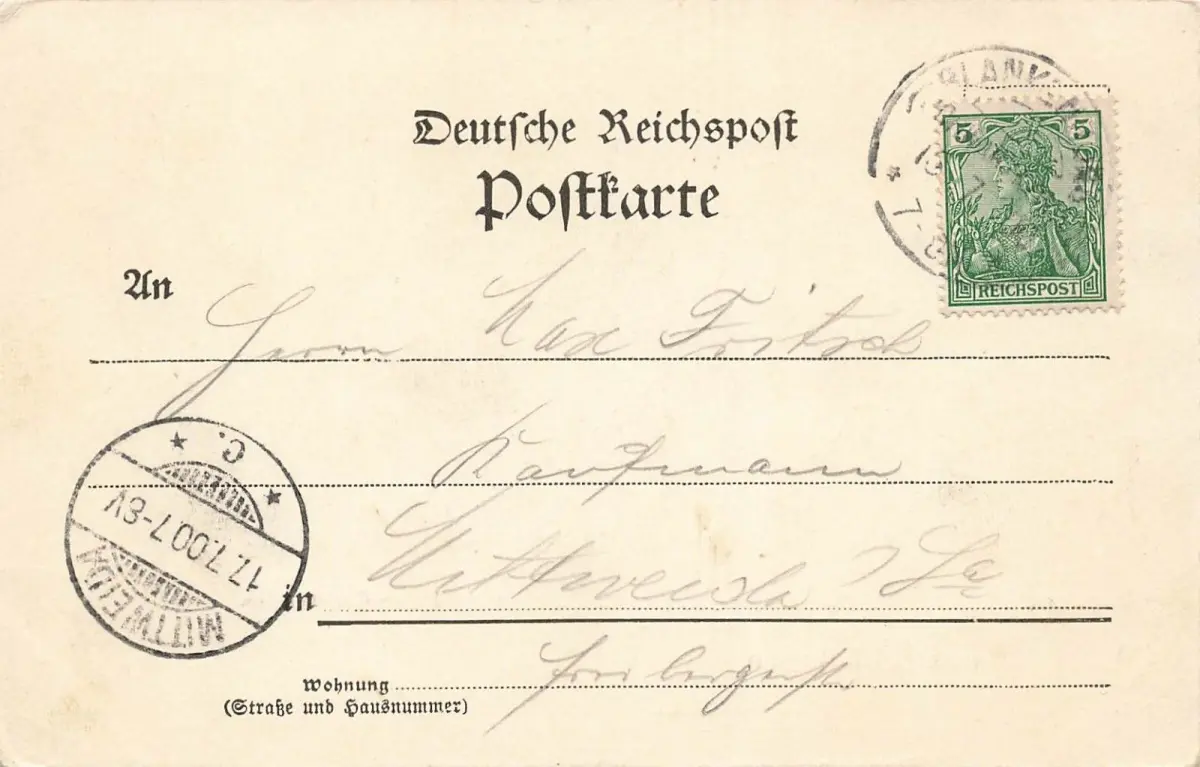 Deutsche Reichspost
Postkarte
BLANK
5 5
REICHSPOST
An Herrn Max Fritsch
Kaufmann
C.
17.7.00.7-8V
MITTWEIDA
in Mittweida i/Sa
Wohnung Freibergerstr
(Straße und Hausnummer)